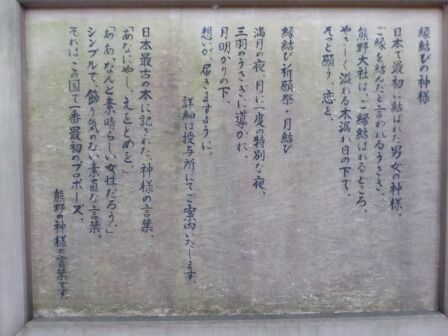 縁結びの神様
日本で最初に結ばれた男女の神様。
ご縁を結んだと言われるうさぎ。
熊野大社は、ご縁結ばれるところ。
やさしく溢れる木漏れ日の下で、
そっと願う、恋と。
縁結び祈願祭・月結び
満月の夜、月に一度の特別な夜。
三羽のうさぎに導かれ、
月明かりの下、
想いが、届きますように。
詳細は授与所にてご案内いたします。
日本最古の本に記された、神様の言葉。
「あなにやし、えをとめを。」
「ああ、なんと素晴らしい女性だろう。」
シンプルで、飾り気のない素直な言葉。
それは、この国で一番最初のプロポーズ。
熊野の神様の言葉です。